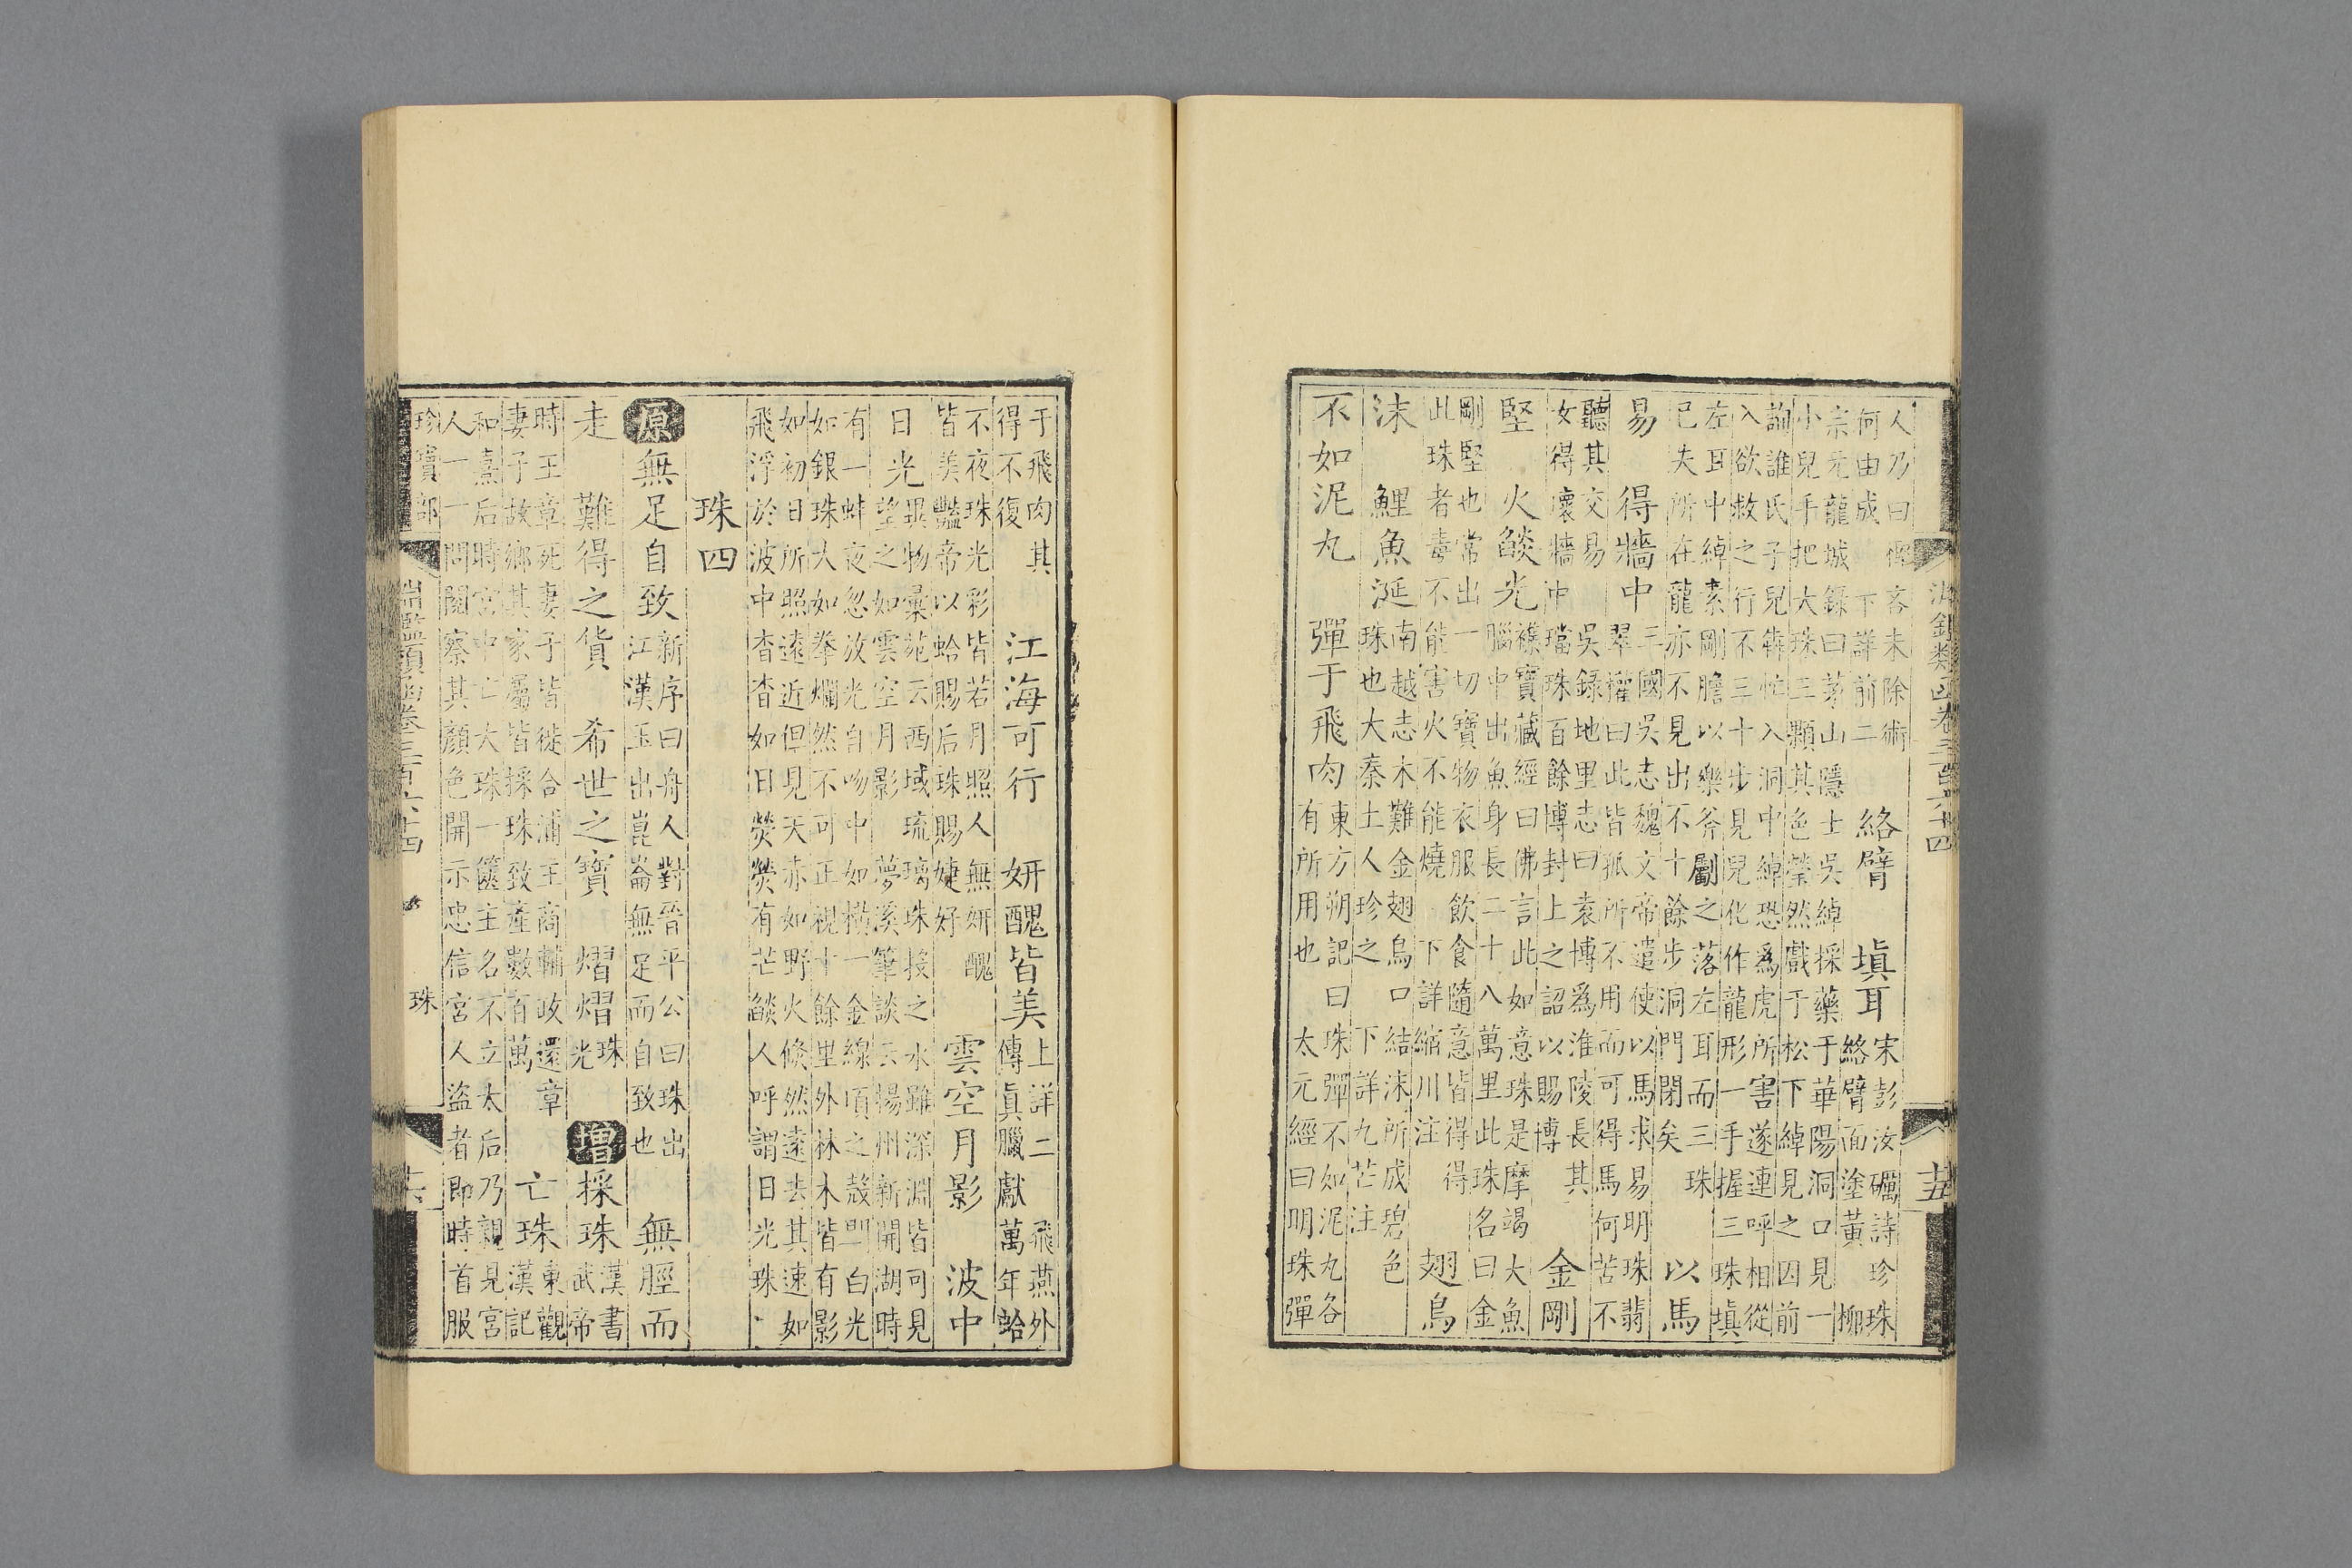 淵鑑類函卷三百六十四 十五
人乃曰儒客未除術
何由成 下詳前二
絡臂 填耳
宋彭汝礪詩珍珠
絡臂面塗黃柳
宗元龍城錄曰茅山隱士吳綽採藥于華陽洞口見一
小兒手把大珠三顆其色瑩然戲于松下綽見之因前
詢誰氏子兒犇忙入洞中綽恐為虎所害遂連呼相從
入欲救之行不三十步見兒化作龍形一手握三珠填
左耳中綽素剛膽以藥斧斸之落左耳而三珠
已失所在龍亦不見出不十餘步洞門閉矣
以馬
易 得牆中
三國吳志魏文帝遣使以馬求易明珠翡
翠權曰此皆孤所不用而可得馬何苦不
聽其交易 吳錄地里志曰袁博爲淮陵長其
女得壞牆中璫珠百餘博封上之詔以賜博
金剛
堅 火燄光
襍寶藏經曰佛言此如意珠是摩竭大魚
腦中出魚身長二十八萬里此珠名曰金
剛堅也常出一切寶物衣服飲食隨意皆得得
此珠者毒不能害火不能燒 下詳縮川注
翅鳥
沫 鯉魚涎
南越志木難金翅鳥口結沫所成碧色
珠也大秦土人珍之 下詳九芒注
不如泥丸 彈于飛肉
東方朔記曰珠彈不如泥丸各
有所用也 太元經曰明珠彈
于飛肉其
得不復
江海可行 妍醜皆美
上詳二 飛燕外
傳真臘獻萬年蛤
不夜珠光彩皆若月照人無妍醜
皆美豔帝以蛤賜后珠賜婕妤
雲空月影 波中
日光
畢物彙苑云西域琉璃珠投之水雖深淵皆可見
望之如雲空月影 夢溪筆談云揚州新開湖時
有一蚌夜忽放光自吻中如橫一金線頃之殼門白光
如銀珠大如拳爛然不可正視十餘里外林木皆有影
如初日所照遠近但見天赤如野火倏然遠去其速如
飛浮於波中杳杳如日熒熒有芒燄人呼謂日光珠
珠四
原 無足自致
新序曰舟人對晉平公曰珠出
江漢玉出崑崙無足而自致也
無脛而
走 難得之貨 希世之寶 熠熠
珠
光
增 採珠
漢書
武帝
時王章死妻子皆徙合浦王商輔政還章
妻子故鄉其家屬皆採珠致產數百萬
亡珠
東觀
漢記
和熹后時宮中亡大珠一篋主名不立太后乃親見宮
人一一問閱察其顏色開示忠信宮人盜者即時首服
珍寶部
淵鑑類函卷三百六十四 珠 十六